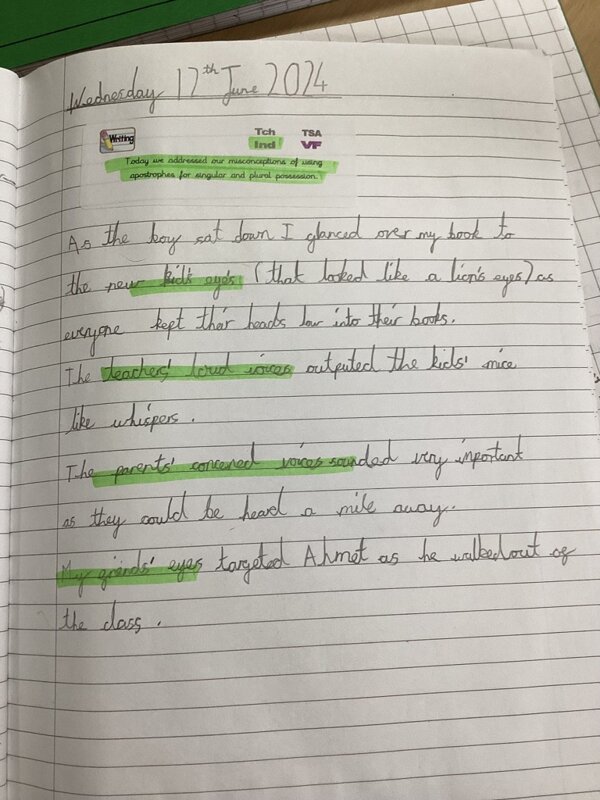 Wednesday 12th June 2024
Writing
Tch TSA
Ind VF
Today we addressed our misconceptions of using
apostrophes for singular and plural possession.
As the boy sat down I glanced over my book to
the new kid's eyes (that looked like a lion's eyes) as
everyone kept their heads low into their books.
The teachers' loud voices outputed the kids' mice
like whispers.
The parents' concerned voices sounded very important
as they could be heard a mile away.
My friends' eyes targeted Ahmet as he walked out of
the class.